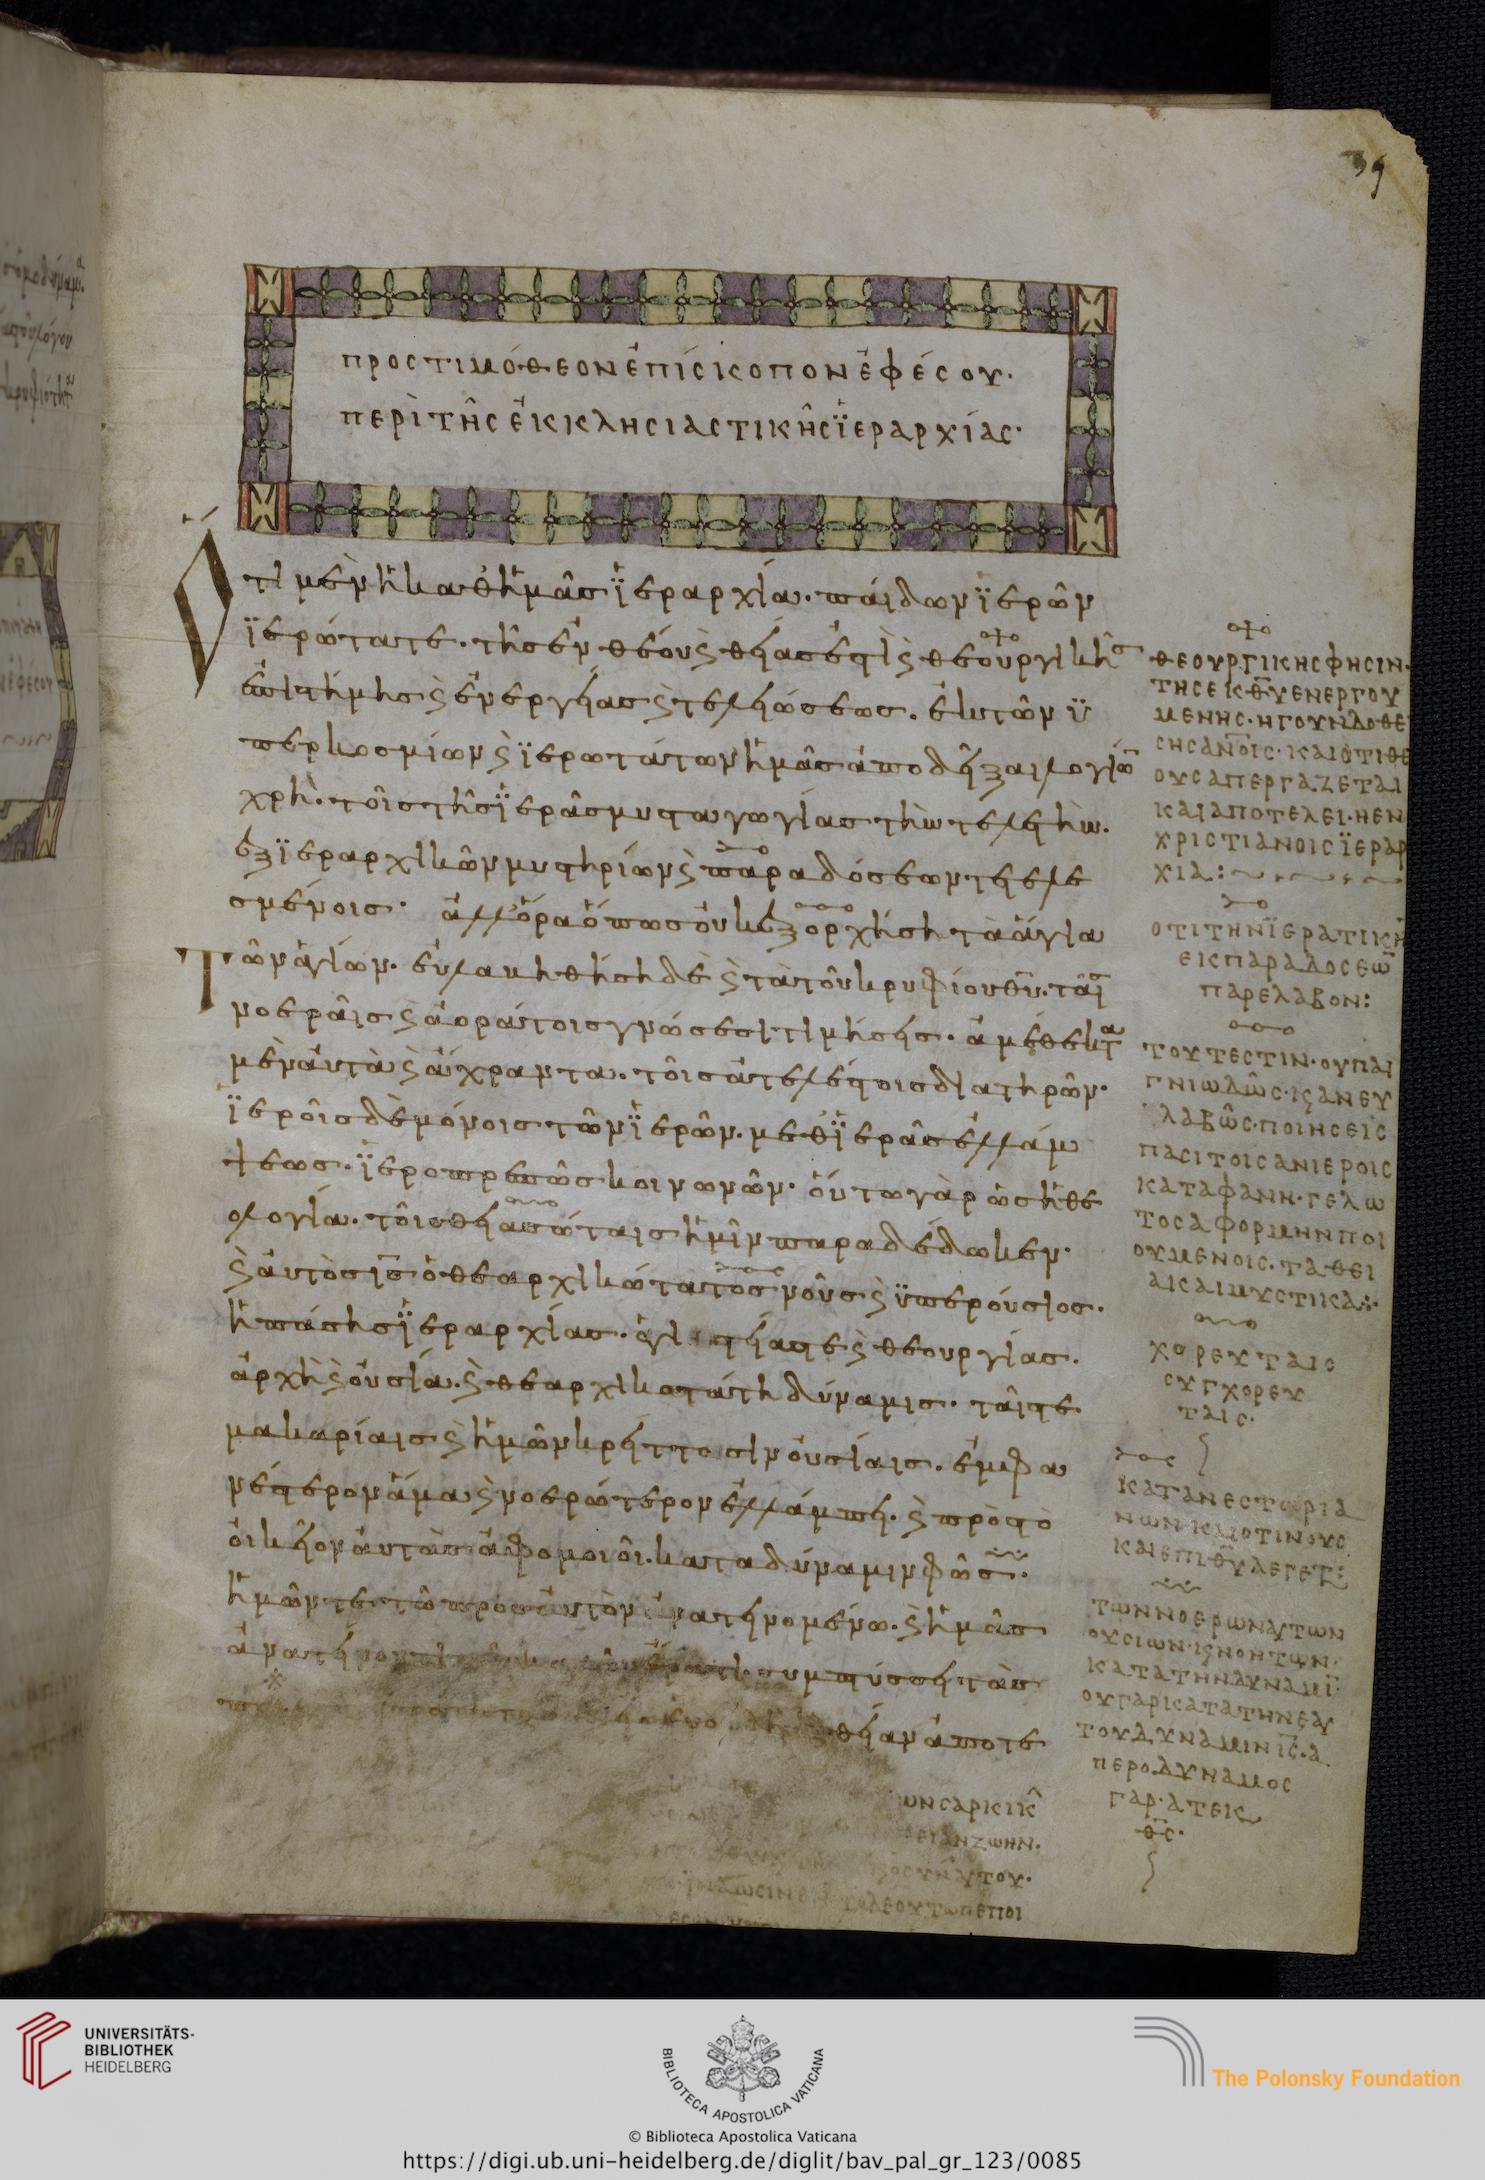 39
προστιμόθεονἐπίσκοπονἐφέσου·
περὶτῆςἐκκλησιαστικῆςἱεραρχίας·
Ὅτι μὲν ἡ καθ' ἡμᾶς ἱεραρχία· πάιδων ἱερῶν
ἱερώτατε· τῆς ἐν θέου ϗ θείας ἐστὶ ϗ θεουργικῆς
ἐπιστήμης ϗ ἐνεργείας ϗ τελειώσεως· ἐκ τῶν ὑ
περκοσμίων ϗ ἱερωτάτων ἡμᾶς ἀποδεῖξαι λογίω̅
χρή· τοῖς τῆς ἱερᾶς μυσταγωγίας τὴν τελετὴν·
ἐξ ἱεραρχικῶν μυστηρίων ϗ παραδόσεων τετελε
σμένοις· ἀλλ' ὅρα ὅπως οὐκ ἐξορχήση τὰ ἅγια
τῶν ἁγίων· εὐλαβηθήση δὲ ϗ τὰ τοῦ κρυφίου θ̅υ̅· ταῖς
νοεραῖς ϗ ἀοράτοις γνώσεσι τιμήσεις· ἀμέθεκτα
μὲν αὐτὰ ϗ ἄχραντα· τοῖς ἀτελέστοις διατηρῶν·
ἱεροῖς δὲ μόνοις τῶν ἱερῶν· μεθ' ἱερᾶς ἐλλάμ
ψεως· ἱεροπρεπῶς κοινωνῶν· οὕτω γὰρ ὡς ἡ θε
ολογία· τοῖς θειασώταις ἡμῖν παραδέδωκεν·
ϗ αὐτὸς ι̅ς̅ ὁ θεαρχικώτατος νοῦς ϗ ὑπερούσιος·
ἡ πάσης ἱεραρχίας· ἁγιστείας τε ϗ θεουργίας·
ἀρχὴ ϗ οὐσία· ϗ θεαρχικωτάτη δύναμις· ταῖς τε
μακαρίαις ϗ ἡμῶν κρείττοσιν οὐσίαις· ἐμφα
νέστερον ἅμα ϗ νοερώτερον ἐλλάμπει· ϗ πρὸς τὸ
οἰκεῖον αὐτὰς ἀφομοιοῖ· κατα δύναμιν φῶς·
ἡμῶν τε τῶ προς αὐτὸν ἀνατεινομένω· ϗ ἡμᾶς
ἀνατείνοντι συμπτύσσει τὰς
θείαν ἀποτε
θεουργικηςφησιν·
τησεκθ̅υ̅ενεργου
μενης·ηγουνδοθε
σησαν̅ο̅ις·καιοτιθε
ουςαπεργαζεται
καιαποτελει·ηεν
χριστιανοιςϊεραρ
χια:
οτιτηνϊερατικη̅
εκπαραδοσεω̅
παρελαβον:
τουτεστιν·ουπαι
γνιωδῶς·ϗανευ
λαβῶς·ποιησεις
πασιτοιςανιεροις
καταφανη·γελω
τοςαφορμηνποι
ουμενοις·ταθει
αικαιμυστικα:
χορευταις
συγχορευ
ταις·
κατανεστωρια
νωνκαιοτινους
καιεπιθ̅υ̅λεγετ
τωννοερωναυτων
ουσιων·ϗνοητων·
κατατηνδυναμι̅
ουγαρκατατηνεαυ
τουδυναμινι̅ς̅·α
περοδυναμος
γαρ·ατεικ
θ̅ς̅·
ζωην·
UNIVERSITÄTS-
BIBLIOTHEK
HEIDELBERG
BIBLIOTECA APOSTOLICA VATICANA
The Polonsky Foundation
© Biblioteca Apostolica Vaticana
https://digi.ub.uni-heidelberg.de/diglit/bav_pal_gr_123/0085